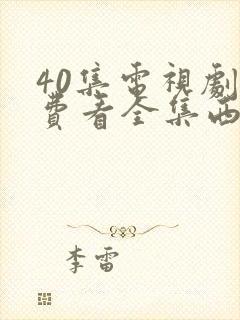 40集電視劇
費看全集西
李雷